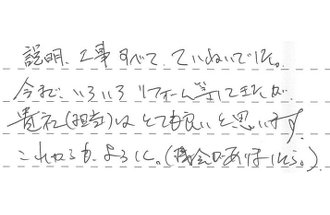 説明、工事すべて、ていねいでした。
今まで、いろいろリフォーム等してきたが
貴社(担当)はとても良いと思います。
これからも、よろしく。(機会があればしたら。)